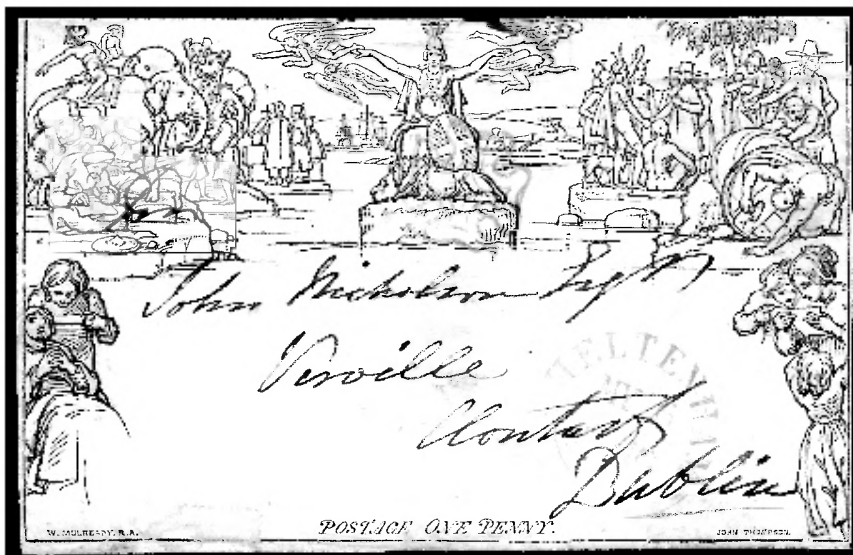 John Nicholson Esqre
Verville
Clontarf
Dublin
W. MULREADY. R.A.
POSTAGE ONE PENNY.
JOHN THOMPSON.